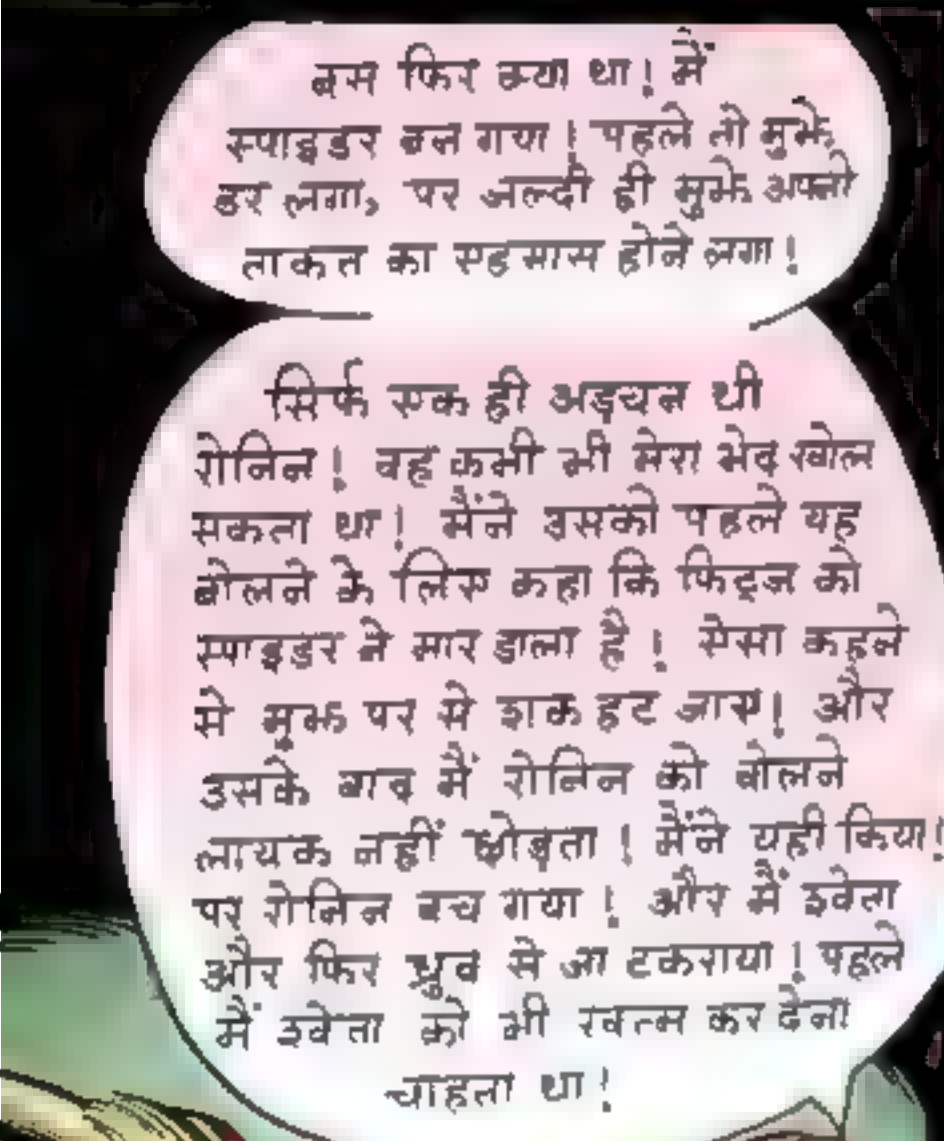 बस फिर क्या था! मैं
स्पाइडर बन गया! पहले तो मुझे
डर लगा, पर जल्दी ही मुझे अपनी
ताकत का एहसास होने लगा!
सिर्फ एक ही अड़चन थी
रोनिन! वह कभी भी मेरा भेद खोल
सकता था! मैंने उसको पहले यह
बोलने के लिए कहा कि फिट्ज को
स्पाइडर ने मार डाला है! ऐसा कहने
से मुझ पर से शक हट जाए! और
उसके बाद मैं रोनिन को बोलने
लायक नहीं छोड़ता! मैंने यही किया!
पर रोनिन बच गया! और मैं श्वेता
और फिर ध्रुव से आ टकराया! पहले
मैं श्वेता को भी खत्म कर देना
चाहता था!